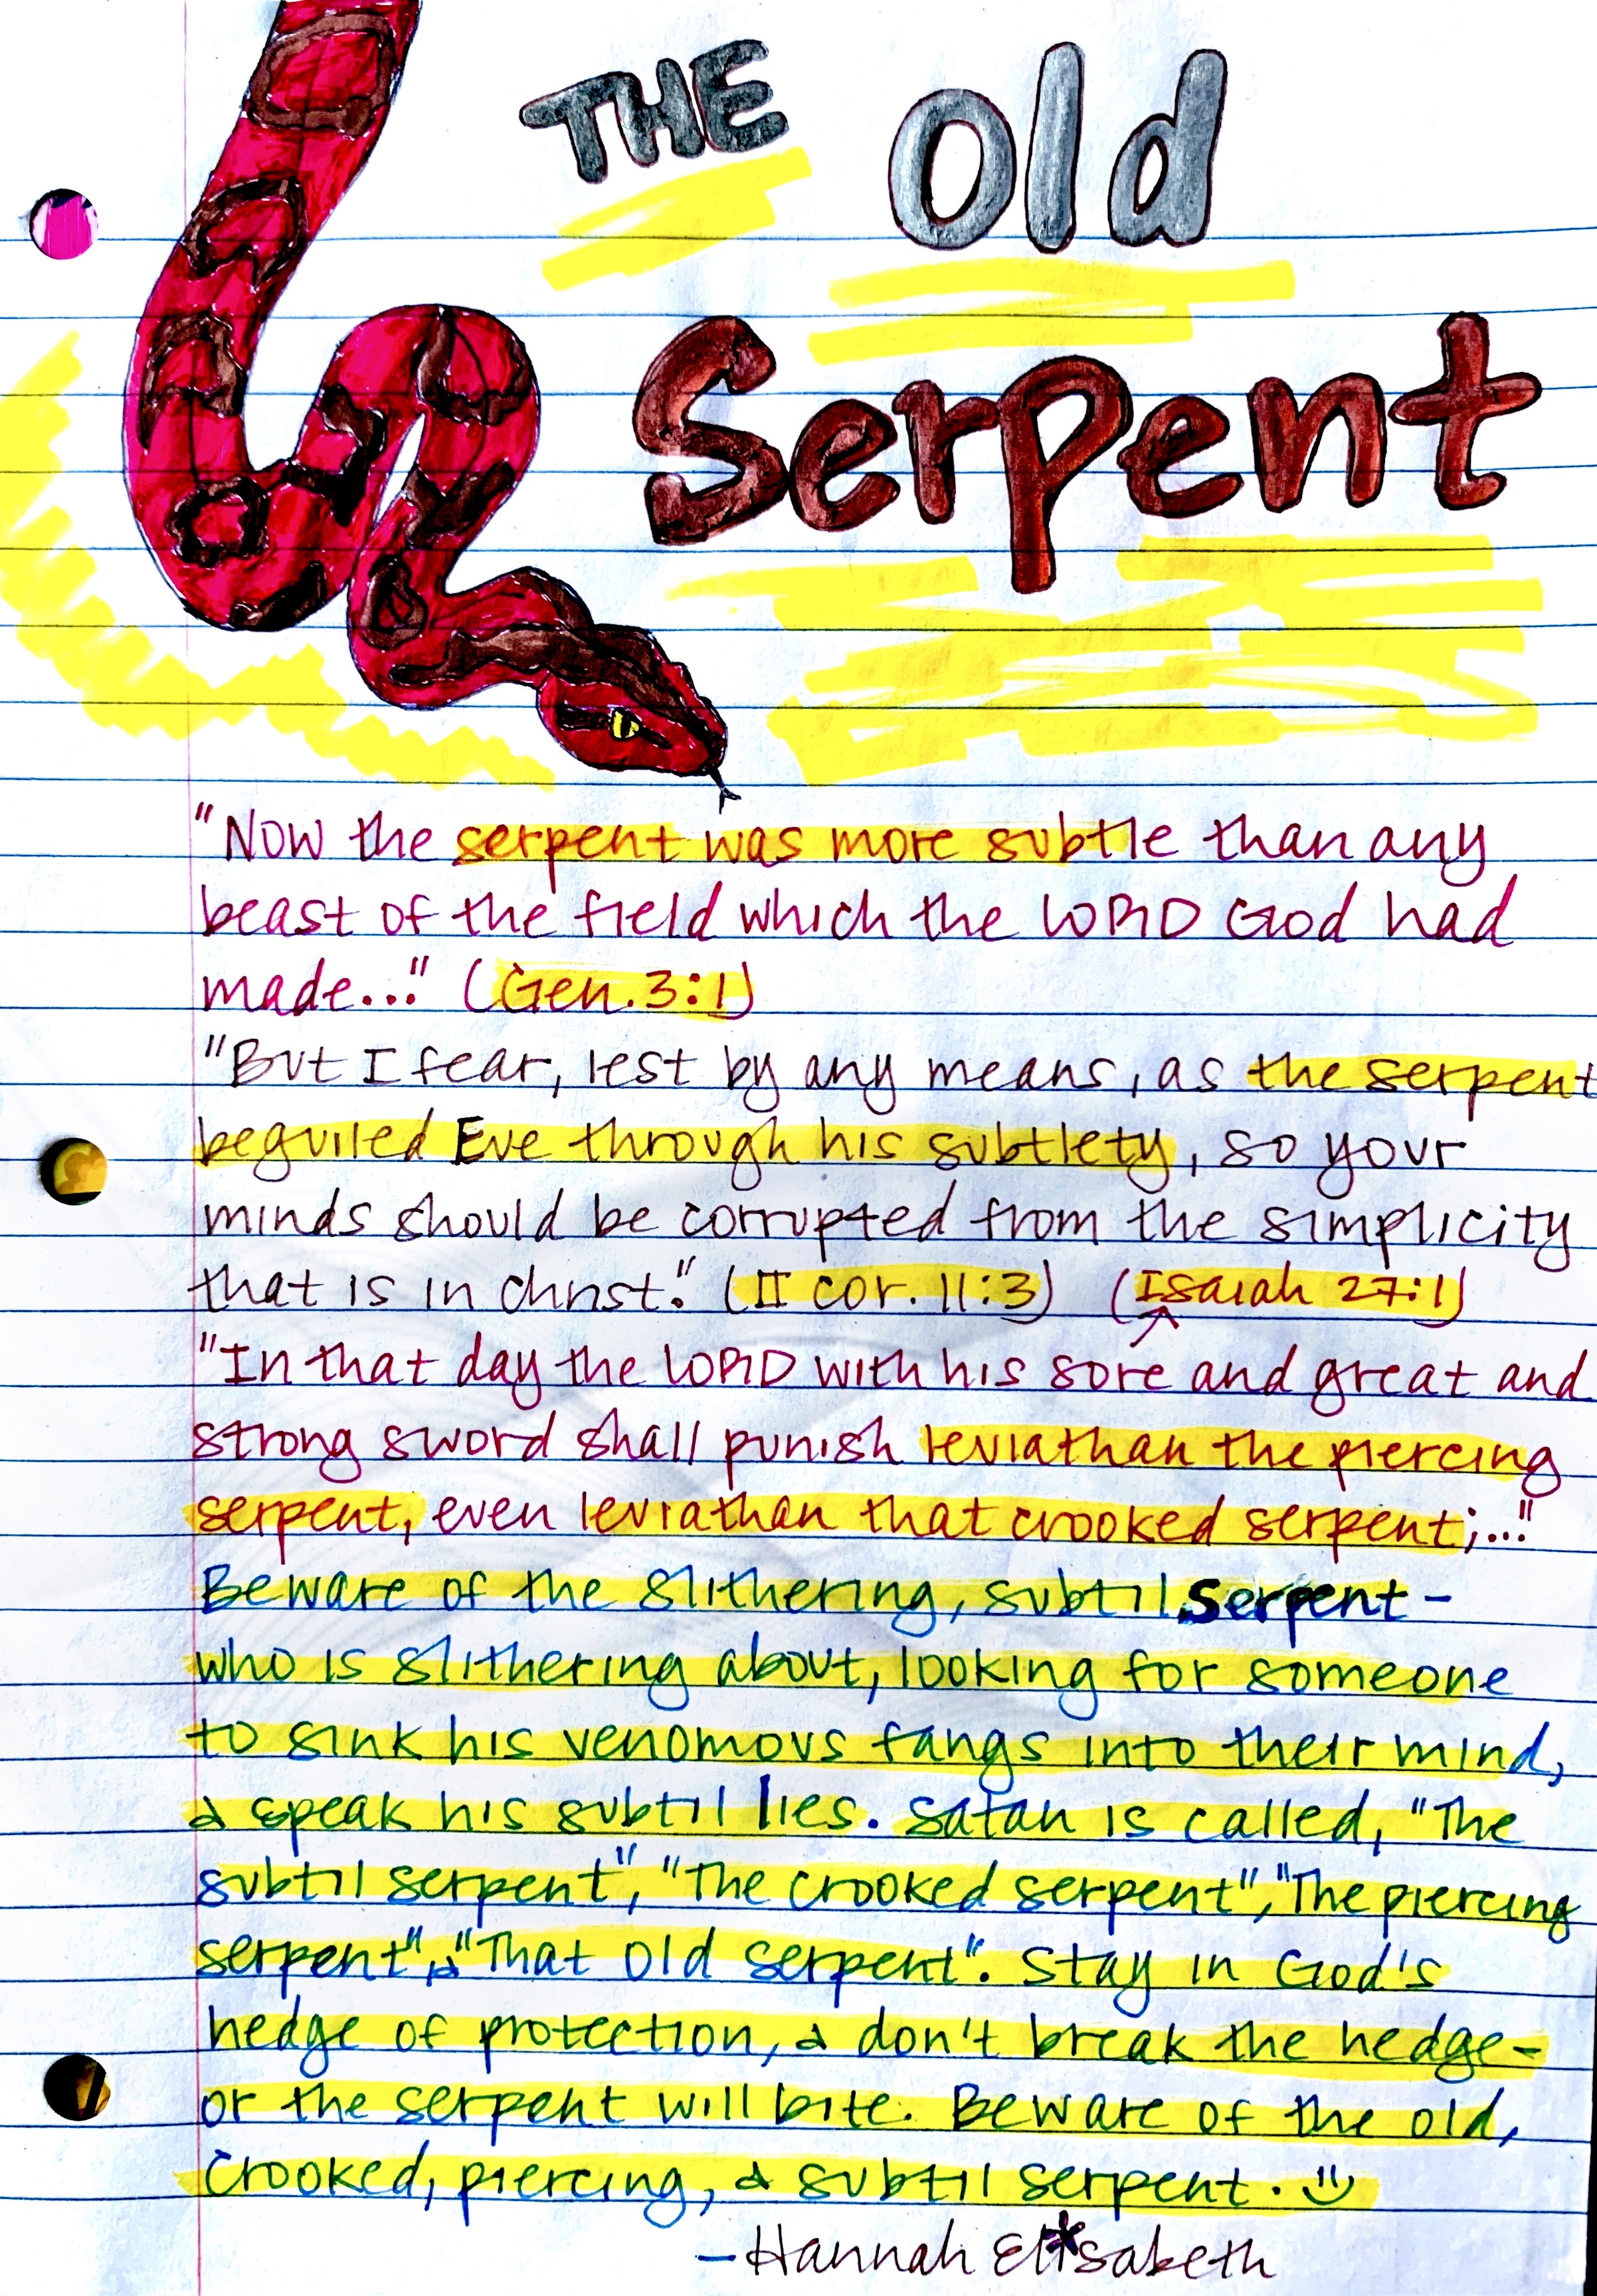 THE Old
Serpent
"Now the serpent was more subtle than any
beast of the field which the LORD God had
made..." (Gen. 3:1)
"But I fear, lest by any means, as the serpent
beguiled Eve through his subtlety, so your
minds should be corrupted from the simplicity
that is in Christ." (II Cor. 11:3) (Isaiah 27:1)
"In that day the LORD with his sore and great and
strong sword shall punish leviathan the piercing
serpent, even leviathan that crooked serpent;..."
Beware of the slithering, subtil serpent -
who is slithering about, looking for someone
to sink his venomous fangs into their mind,
& speak his subtil lies. Satan is called, "The
subtil serpent", "The crooked serpent", "The piercing
serpent", & "That Old serpent". Stay in God's
hedge of protection, & don't break the hedge -
or the serpent will bite. Beware of the old,
crooked, piercing, & subtil serpent. :)
- Hannah Elisabeth